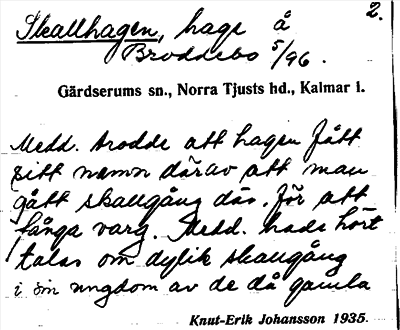 2.
Skallhagen, hage å
Broddebo 5/96.
Gärdserums sn., Norra Tjusts hd., Kalmar l.
Medd. trodde att hagen fått
sitt namn därav att man
gått skallgång där, för att
fånga varg. Medd. hade hört
talas om dylik skallgång
i sin ungdom av de då gamla
Knut-Erik Johansson 1935.